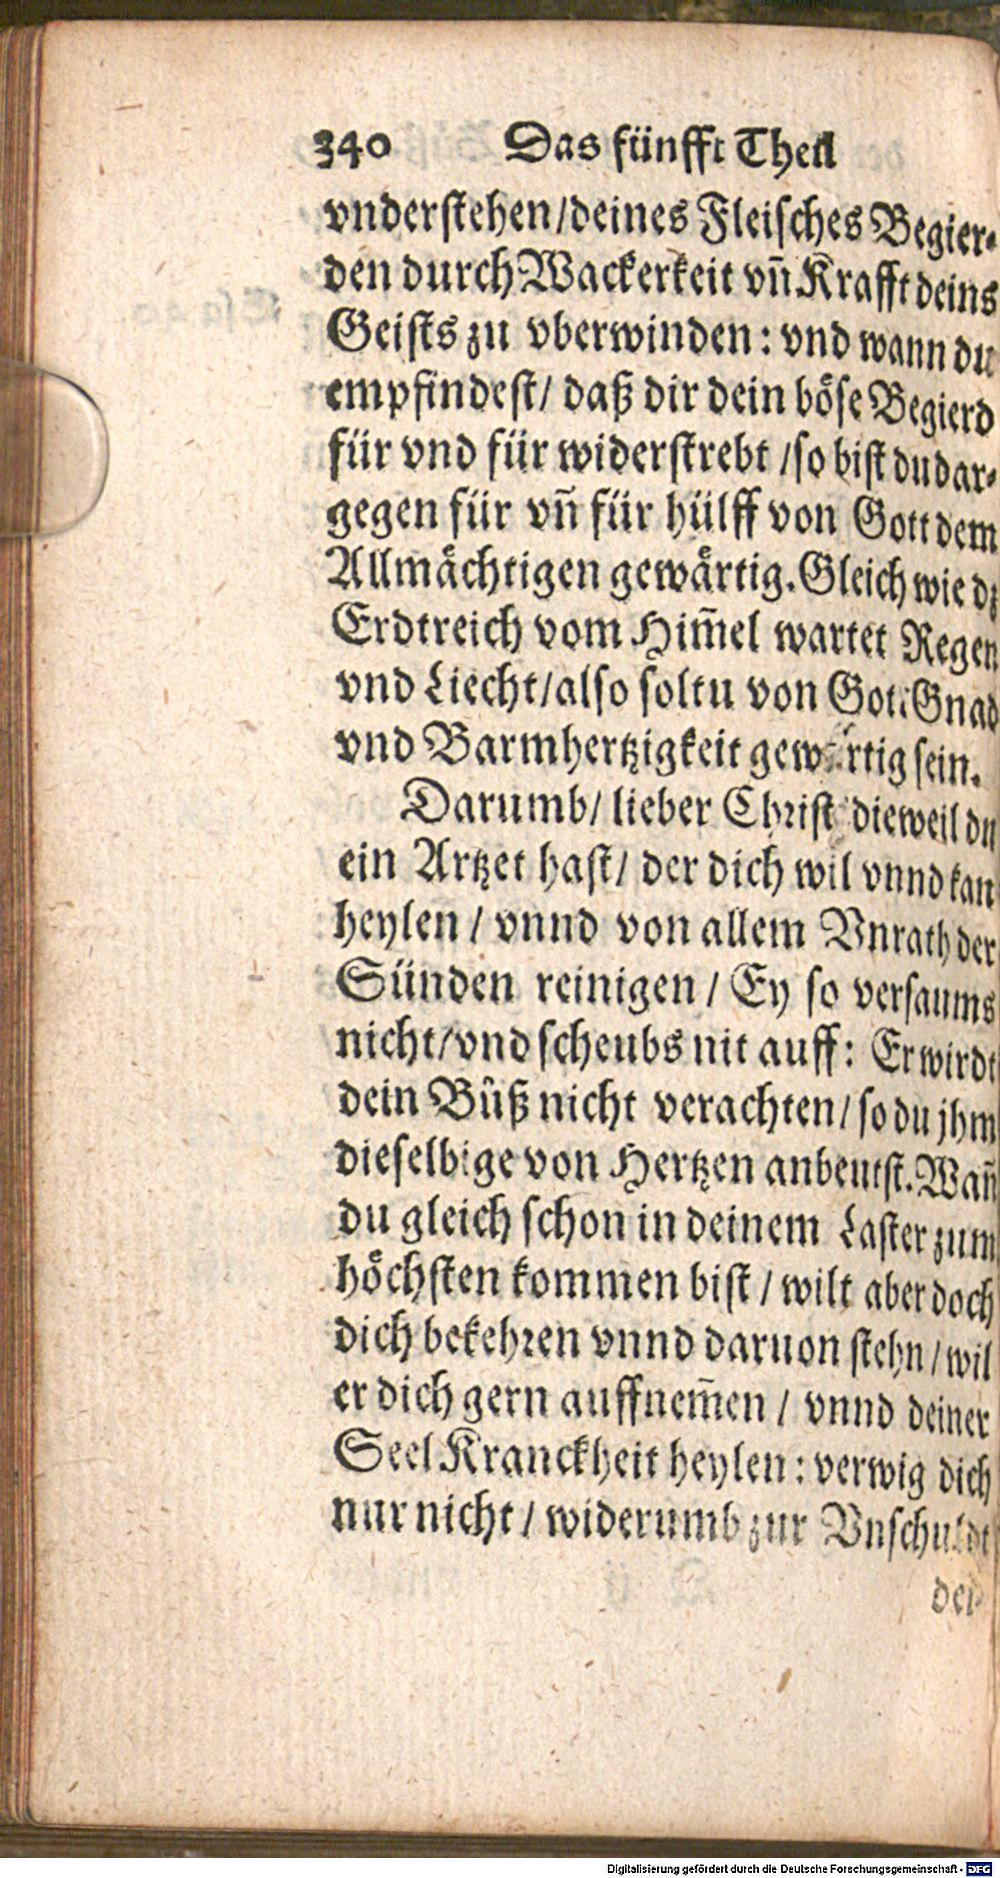 340 Das fünfft Theil
vnderstehen/deines Fleisches Begier-
den durch Wackerkeit vñ Krafft deins
Geists zu vberwinden: vnd wann du
empfindest/ daß dir dein böse Begierd
für vnd für widerstrebt /so bist du dar-
gegen für vñ für hülff von Gott dem
Allmächtigen gewärtig. Gleich wie dz
Erdtreich vom Him̃el wartet Regen
vnd Liecht/also soltu von Gott Gnad
vnd Barmhertzigkeit gewärtig sein.
Darumb/ lieber Christ dieweil du
ein Artzet hast/ der dich wil vnnd kan
heylen / vnnd von allem Vnrath der
Sünden reinigen / Ey so versaums
nicht/vnd scheubs nit auff: Er wirdt
dein Bůß nicht verachten/ so du jhm
dieselbige von Hertzen anbeutst. Wañ
du gleich schon in deinem Laster zum
höchsten kommen bist / wilt aber doch
dich bekehren vnnd daruon stehn / wil
er dich gern auffnem̃en / vnnd deiner
Seel Kranckheit heylen: verwig dich
nur nicht / widerumb zur Vnschuldt
Digitalisierung gefördert durch die Deutsche Forschungsgemeinschaft - DFG